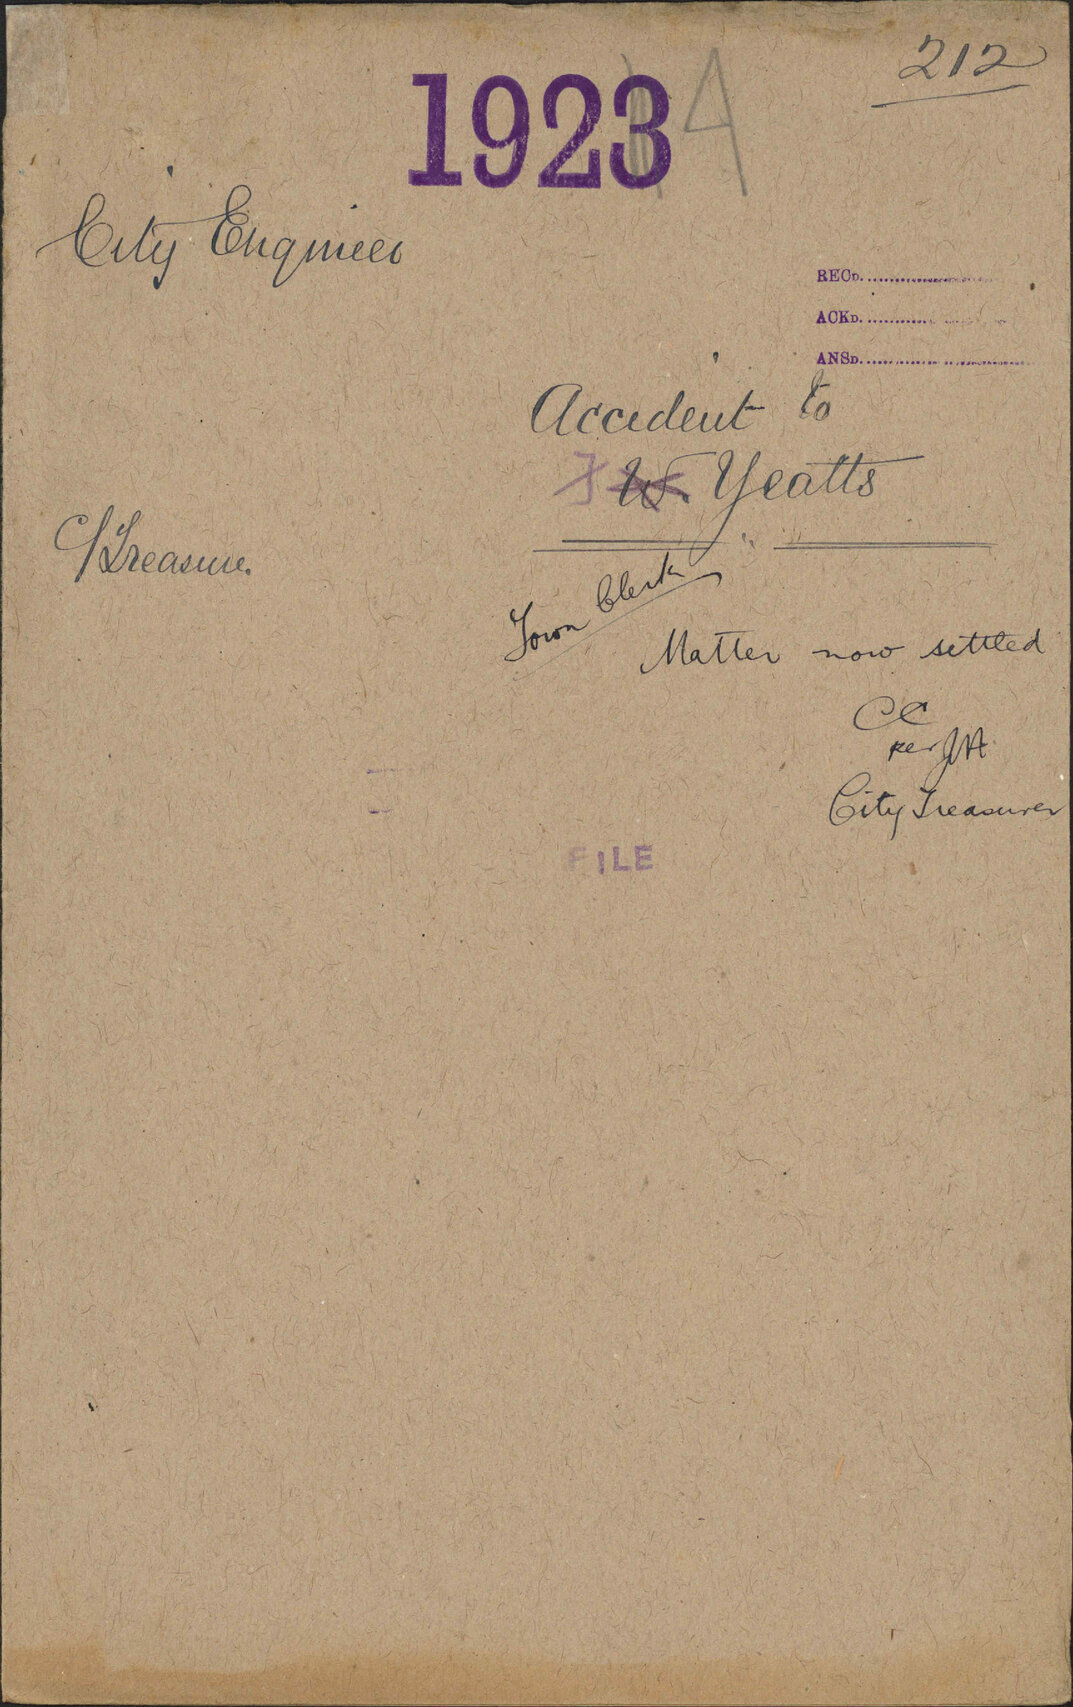 212
1923 4
City Engineer
RECD.
ACKD.
ANSD.
Accident to
J W. Yeatts
C/Treasurer
Town Clerk
Matter now settled
CC
per JA
City Treasurer
FILE